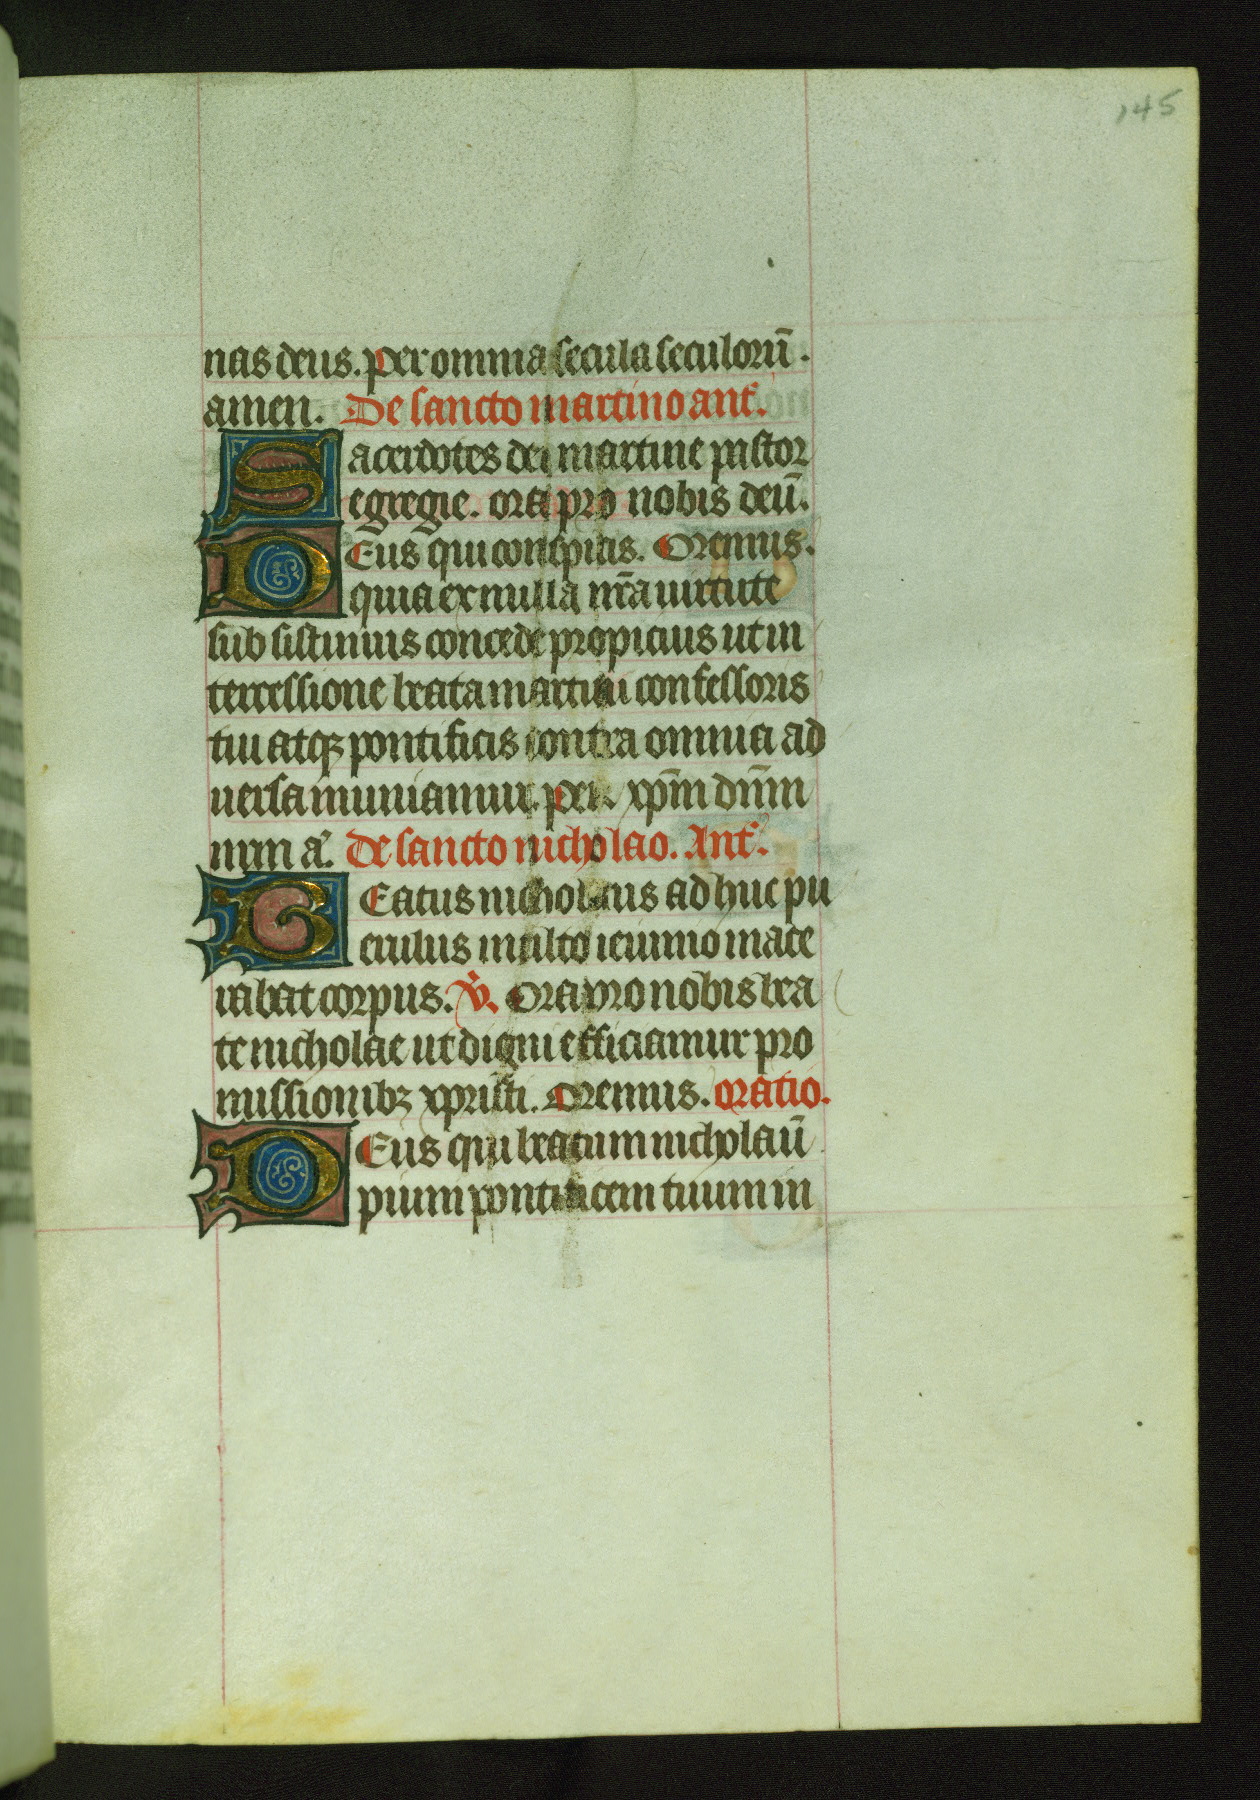 145
nas deus. per omnia secula seculorū.
amen. De sancto martino ant̄.
Sacerdotes dei martine pastor
egregie. ora pro nobis deū.
DEus qui conspicis. Oremus.
quia ex nulla nr̄a uirtute
sub sistimus concede propicius ut in
tercessione beata martini confessoris
tui atqꝫ pontificis contra omnia ad
uersa muniamur. per xp̄m dn̄m
nr̄m a. de sancto nicholao. Ant̄.
BEatus nicholaus ad huc pu
erulus multo ieiunio mace
rabat corpus. ꝟ. Ora pro nobis bea
te nicholae ut digni efficiamur pro
missionibꝫ xpristi. Oremus. oratio.
DEus qui beatum nicholaū
pium pontificem tuum in